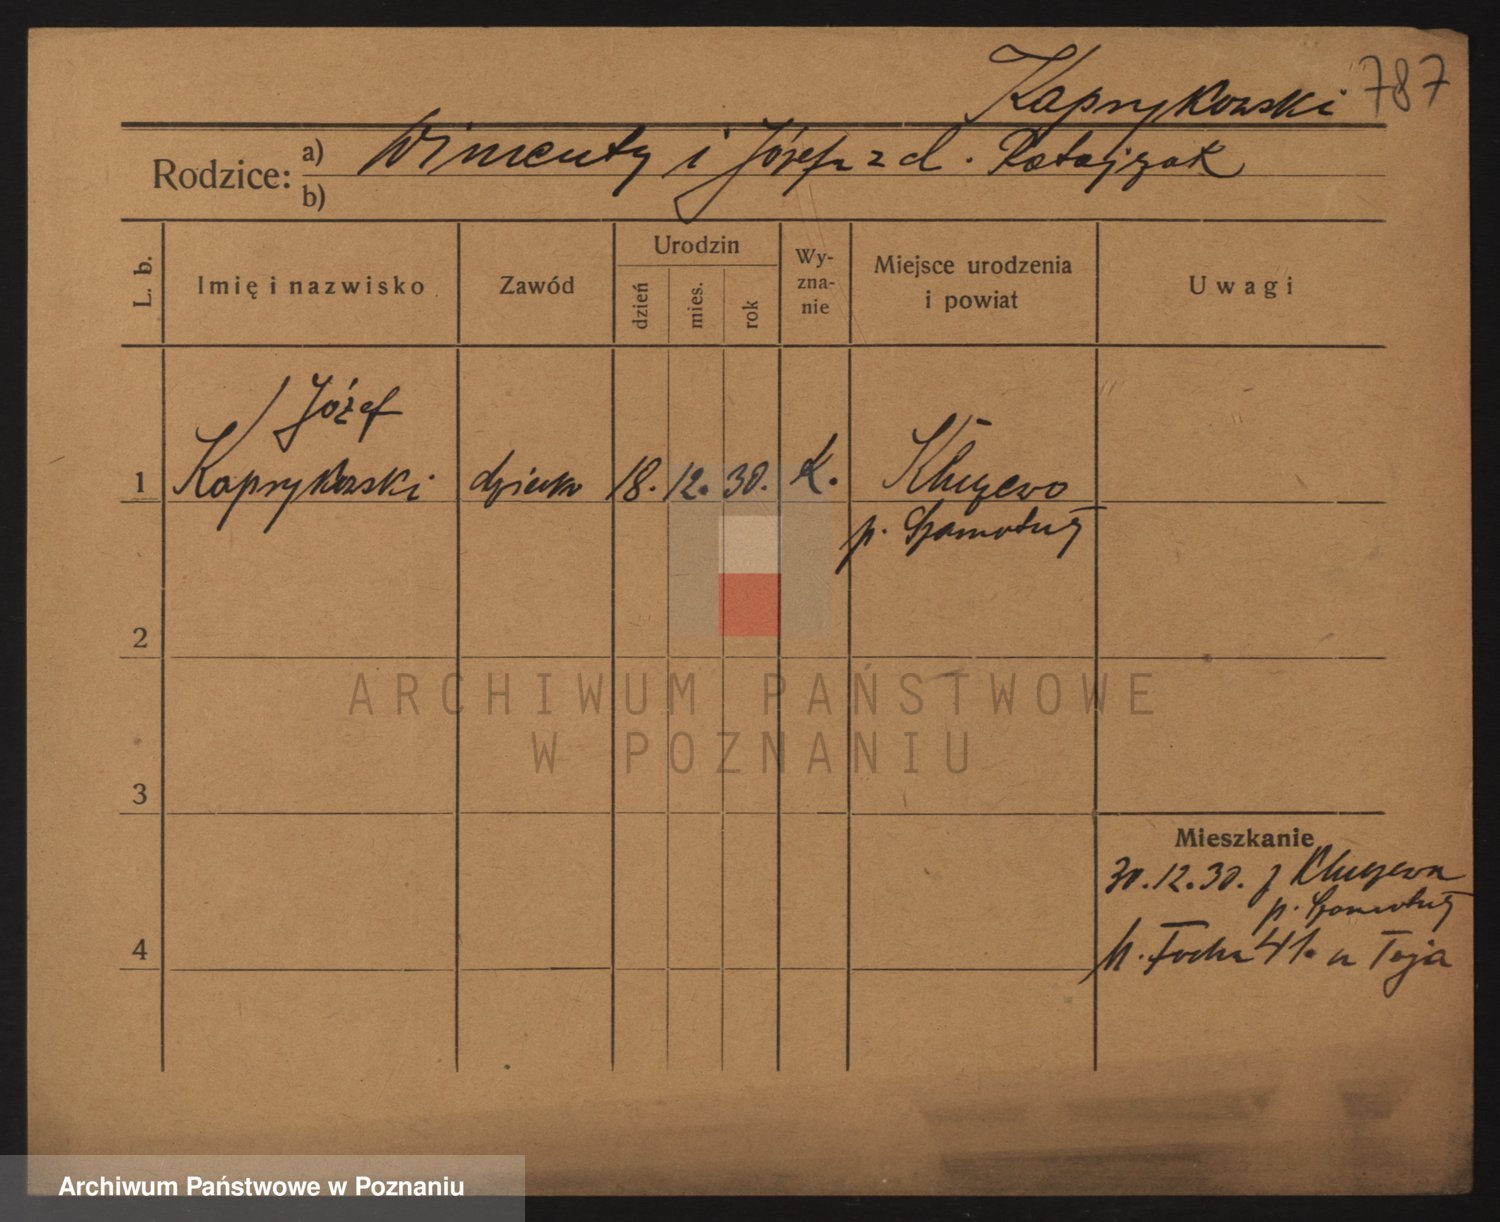 Kaprykowski 787
Rodzice: a) Wincenty i Józefa z d. Ratajczak
b)
L. b.
Imię i nazwisko
Zawód
Urodzin
dzień
mies.
rok
Wy-
zna-
nie
Miejsce urodzenia
i powiat
Uwagi
Józef
1 Kaprykowski dziecko 18. 12. 30. K. Kluczewo
p. Szamotuły
2
ARCHIWUM PAŃSTWOWE
W POZNANIU
3
Mieszkanie
30.12.30. z Kluczewa
p. Szamotuły
4
M. Focha 41. u Teja
Archiwum Państwowe w Poznaniu